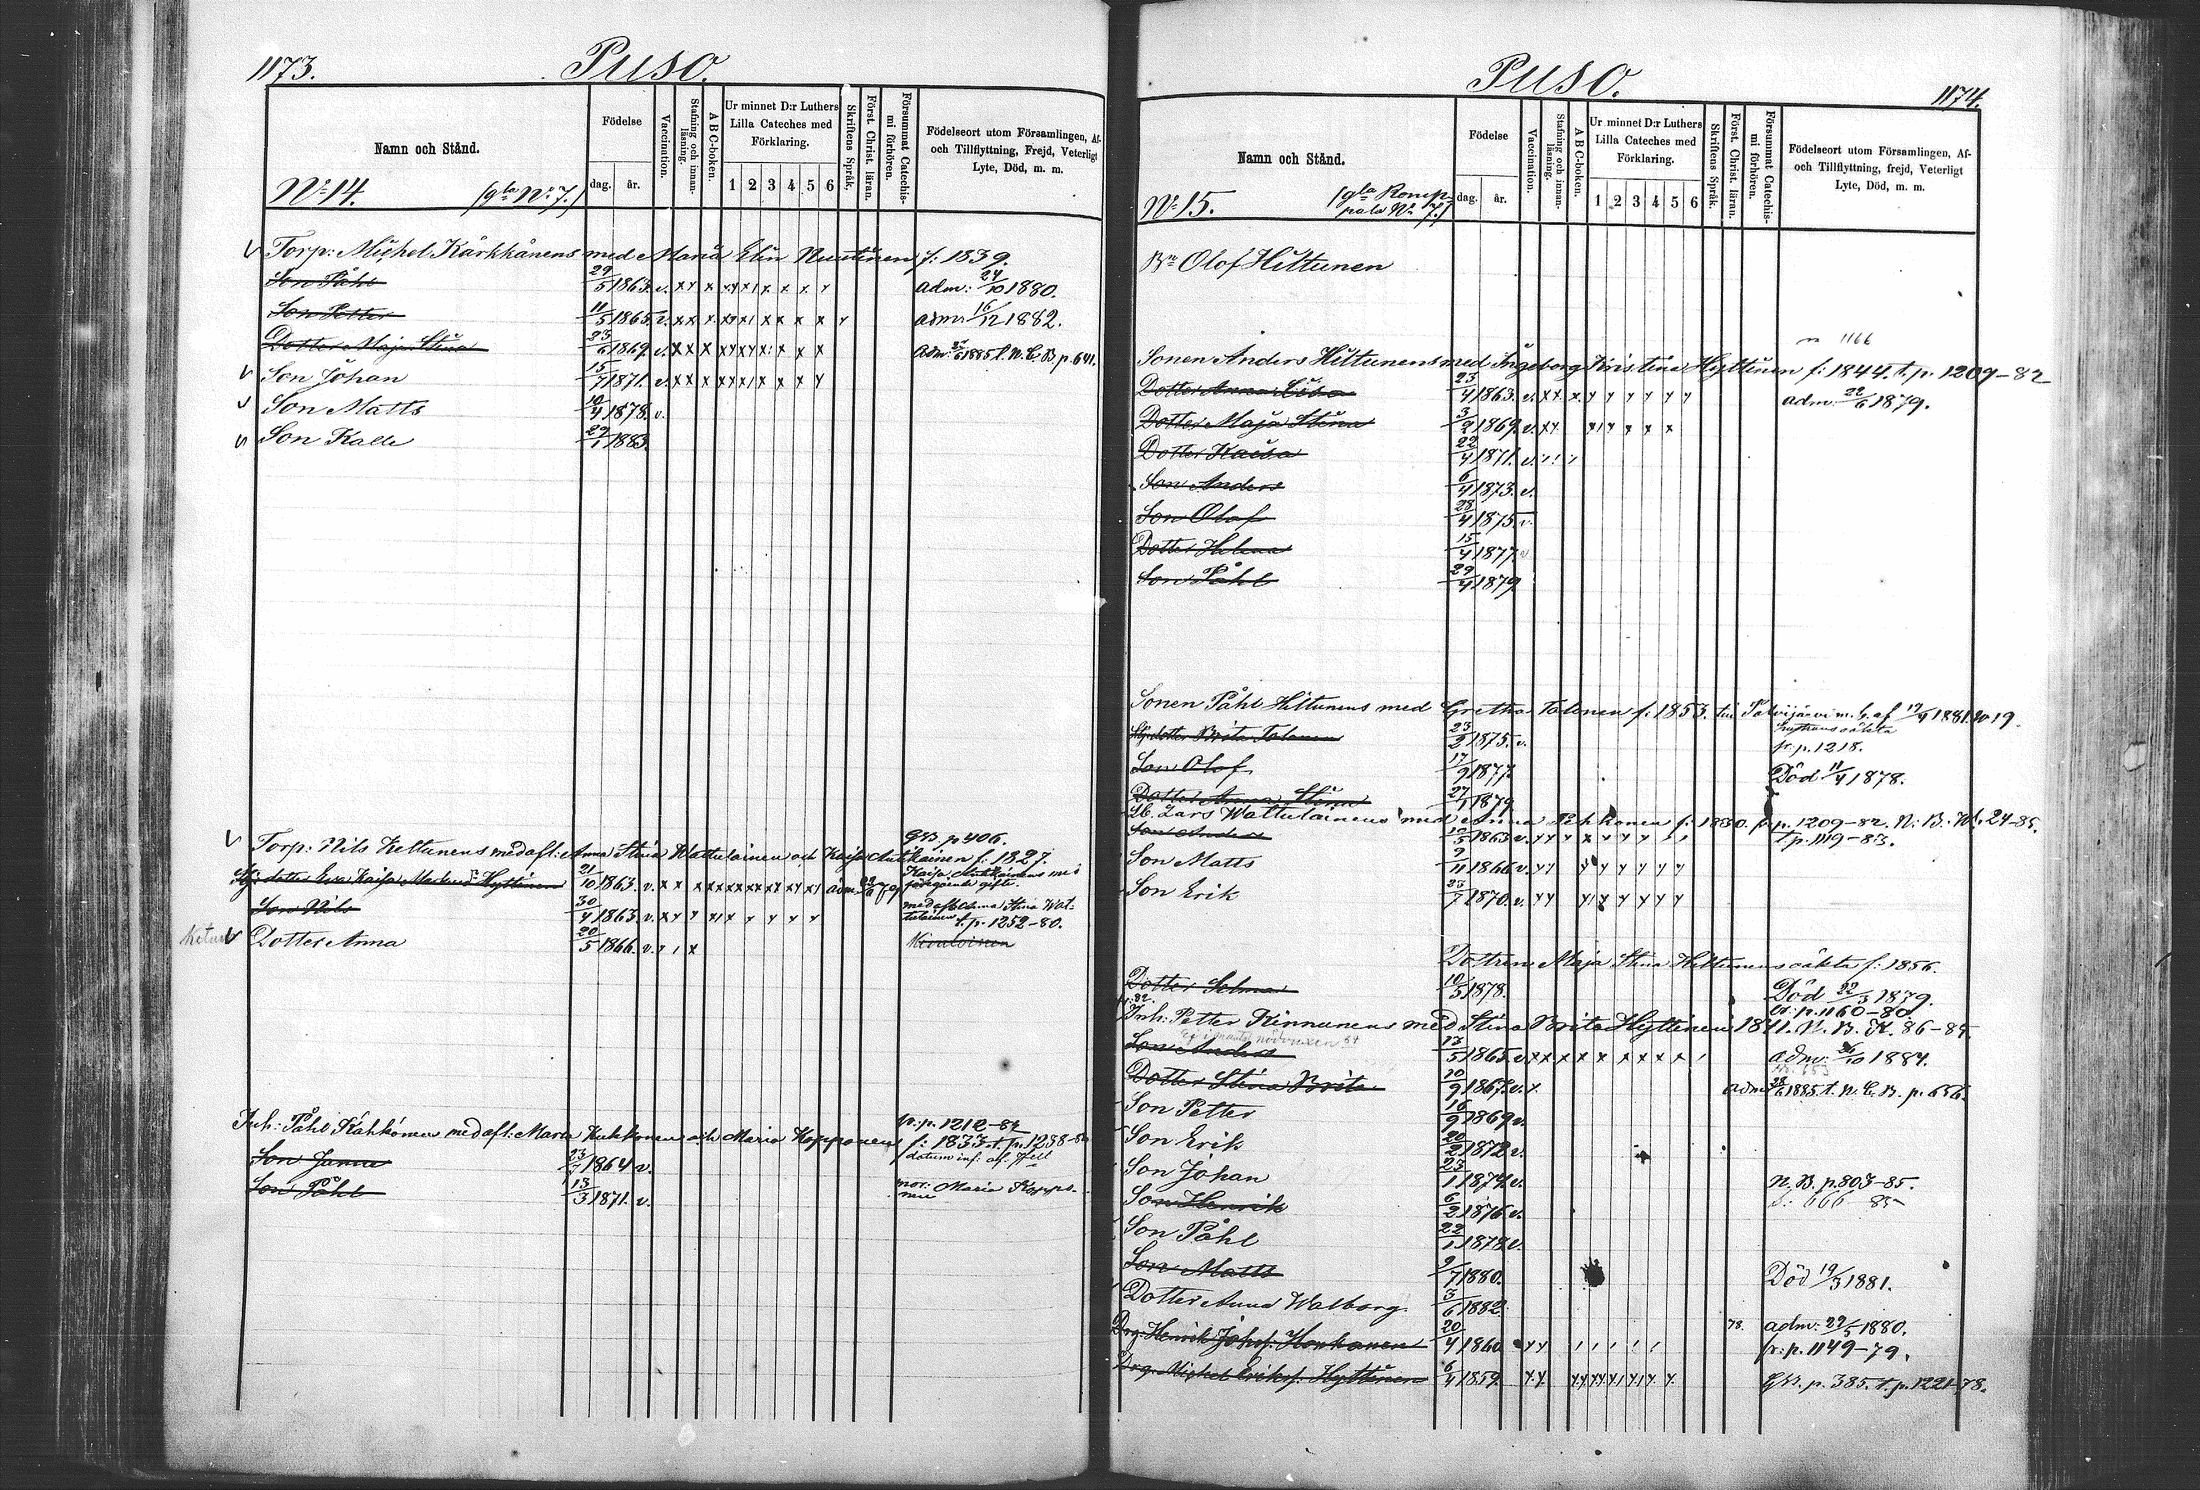 1173.
Puso.
Namn och Stånd.
Födelse
dag. år.
Vaccination.
Stafning och innanläsning.
ABC-boken.
Ur minnet D:r Luthers
Lilla Cateches med
Förklaring.
1 2 3 4 5 6
Skriftens Språk.
Först. Christ. läran.
Försummat Catechismi förhören.
Födelseort utom Församlingen, Af-
och Tillflyttning, Frejd, Veterligt
Lyte, Död, m. m.
No 14. (gla No 7.)
Torp: Michel Kärkkänens med Maria Elin f: 1839.
Son Påhl 29/5 1863. v. adm: 24/10 1880.
Son Petter 11/5 1865. v. adm: 16/12 1882.
Dotter Maja Stina 23/6 1869. v. adm: 1885 t. N. C. B. p. 641.
Son Johan 15/7 1871. v.
Son Matts 10/4 1878. v.
Son Kalle 29/1 1883.
GB. p 406.
Torp: Nils Keltunens med afl: Anna Stina Wattulainen och Kaisa Antikainen f: 1827.
dotter Eva Kaisa Hyttinen 21/10 1863. v.
Kaisa
föregående gifte.
Son Nils 30/4 1863. v. med afl Anna Stina Wat-
tulainen t. p. 1252-80.
Dotter Anna 20/5 1866. v.
fr: p. 1212-84
Inh: Påhl Kähkönen med afl: Maria Kukkonen och Maria Kopponen f: 1833. t. p. 1238-84
datum inf. af.
Son Janne 23/7 1864 v.
Son Påhl 13/3 1871. v. mor: Maria Koppo-
nen
Puso.
1174.
Namn och Stånd.
Födelse
dag. år.
Vaccination.
Stafning och innanläsning.
ABC-boken.
Ur minnet D:r Luthers
Lilla Cateches med
Förklaring.
1 2 3 4 5 6
Skriftens Språk.
Först. Christ. läran.
Försummat Catechismi förhören.
Födelseort utom Församlingen, Af-
och Tillflyttning, frejd, Veterligt
Lyte, Död, m. m.
No 15. (gla Romp-
pala No 7.)
Bn Olof Hiltunen
1166
Sonen Anders Hiltunens med Ingeborg Kristina Hyttinen f: 1844. t. p. 1209-82
Dotter Anna Lisa 23/4 1863. v. adm: 22/6 1879.
Dotter Maja Stina 3/2 1869. v.
Dotter Kaisa 22/4 1871. v.
Son Anders 6/4 1873. v.
Son Olof 28/4 1875. v.
Dotter Helena 15/4 1877. v
Son Påhl 29/4 1879
Sonen Påhl Hiltunens med Gretha Tolonen f: 1853. m. b. af 1881. No 19.
dotter Brita Tolonen 23/2 1875. v. oäkta
fr. p. 1218.
Son Olof 17/9 1877. Död 11/4 1878.
Dotter Anna Stina 27/1 1879
Lars Wattulainens med Anna Pekkonen f: 1830. fr p. 1209-82. N: B. 24-85.
Son Anders 10/5 1863 v. t p. 1119-83.
Son Matts 9/11 1866 v.
Son Erik 23/7 1870. v.
Dottren Maja Stina Hiltunens oäkta f: 1856.
Dotter Selma 10/5 1878. Död 22/3 1879.
fr: p. 1160-80
Inh: Petter Kinnunens med Stina Brita Hyttinen 1841. N. B. 86-85.
Son Anders 13/5 1865. v. adm: 26/10 1884.
Dotter Stina Brita 10/9 1867. v. adm 28/6 1885. t. N. C. B. p. 656.
Son Petter 16/9 1869 v.
Son Erik 20/2 1872 v.
Son Johan 23/1 1874. v. N. B. p. 803-85.
Son Henrik 6/2 1876 v. 666 85
Son Påhl 22/1 1878 v.
Son Matts 9/7 1880. Död 19/3 1881.
Dotter Anna Walborg 3/6 1882
Drg. Henrik Johsf. Honkanen 20/4 1860 78. adm: 22/5 1880.
fr: p. 1149-79.
Drg. Michel Eriksf. Hyttinen 6/4 1859 GB. p. 385. t. p. 1221-78.